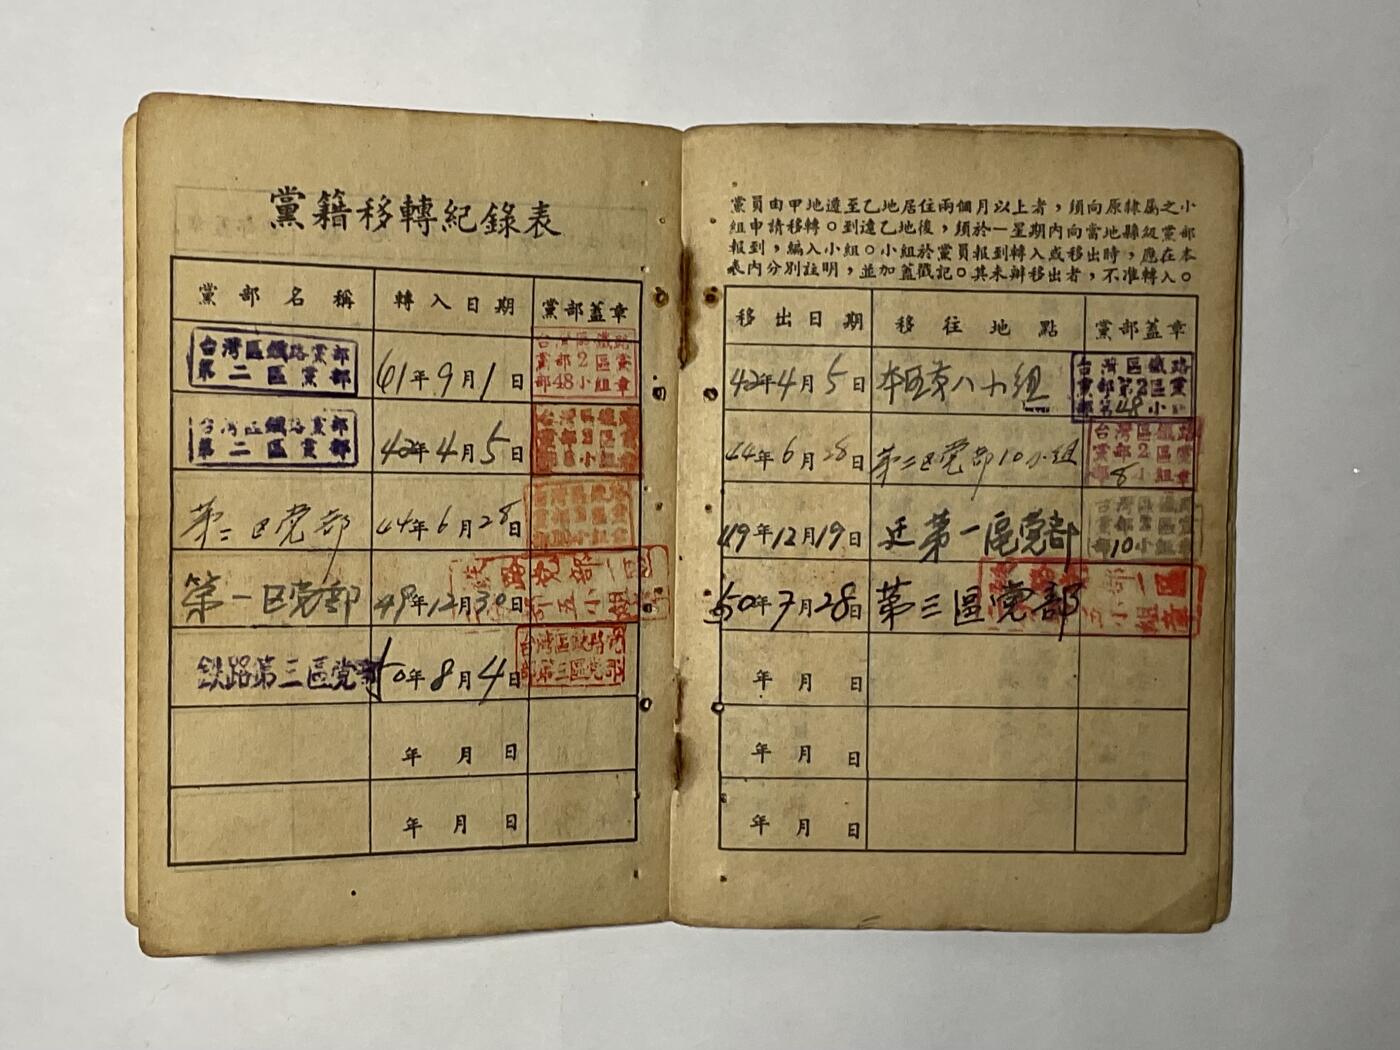 黨籍移轉紀錄表
黨部名稱 轉入日期 黨部蓋章
台灣區鐵路黨部
第二區黨部
61年9月1日
台灣區鐵路
黨部2區黨
部48小組章
台灣區鐵路黨部
第二區黨部
42年4月5日
第二区党部
44年6月28日
第一区党部
49年12月30日
鉄路第三區党部
50年8月4日
台湾區鉄路党
部第三區党部
年 月 日
年 月 日
黨員由甲地遷至乙地居住兩個月以上者，須向原隸屬之小
組申請移轉。到達乙地後，須於一星期內向當地縣級黨部
報到，編入小組。小組於黨員報到轉入或移出時，應在本
表內分別註明，並加蓋戳記。其未辦移出者，不准轉入。
移出日期 移往地點 黨部蓋章
42年4月5日 本区第八小組
台灣區鐵路
黨部第2區黨
部第48小
44年6月28日 第二区党部10小组
台灣區鐵路
黨部2區黨
部8小組章
49年12月19日 迁第一區党部
部10小組章
50年7月28日 第三區党部
年 月 日
年 月 日
年 月 日